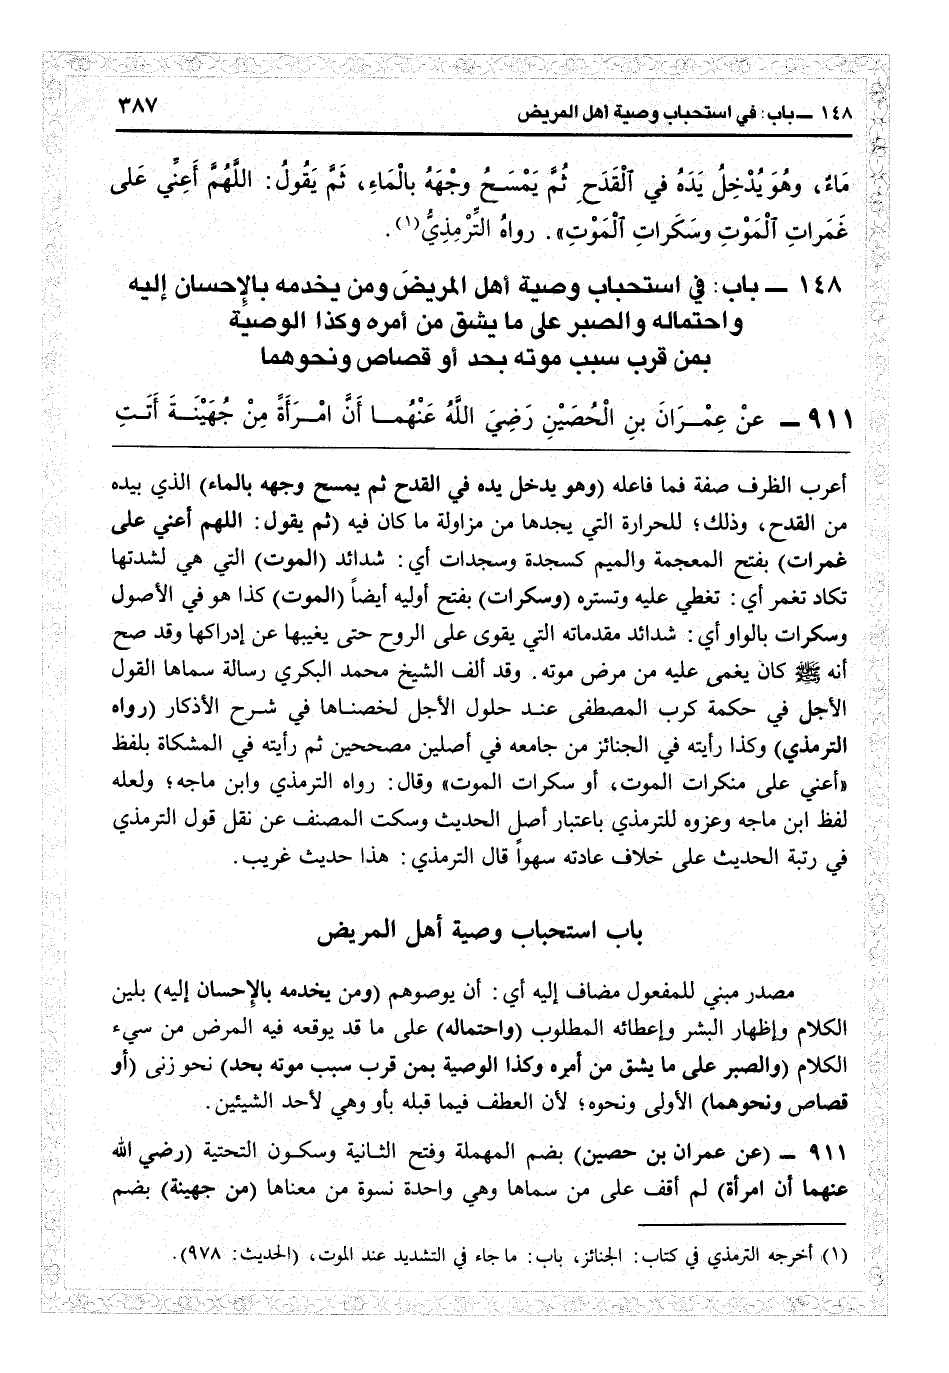 ١٤٨ ــ باب: في استحباب وصية أهل المريض
٣٨٧
مَاءٌ، وهُوَ يُدْخِلُ يَدَهُ في الْقَدَحِ ثُمَّ يَمْسَحُ وجْهَهُ بالْمَاءِ، ثَمَّ يَقُولُ: اللَّهُمَّ أَعِنِّي عَلى
غَمَراتِ الْمَوْتِ وسَكَراتِ الْمَوْتِ». رواهُ التِّرْمِذِيُّ(١).
١٤٨ ــ باب: في استحباب وصية أهل المريض ومن يخدمه بالإحسان إليه
واحتماله والصبر على ما يشق من أمره وكذا الوصية
بمن قرب سبب موته بحد أو قصاص ونحوهما
٩١١ ــ عنْ عِمْـرَانَ بنِ الْحُصَيْنِ رَضِيَ اللَّهُ عَنْهُمـا أَنَّ امْـرَأَةً مِنْ جُهَيْنَـةَ أَتَـتِ
أعرب الظرف صفة فما فاعله (وهو يدخل يده في القدح ثم يمسح وجهه بالماء) الذي بيده
من القدح، وذلك؛ للحرارة التي يجدها من مزاولة ما كان فيه (ثم يقول: اللهم أعني على
غمرات) بفتح المعجمة والميم كسجدة وسجدات أي: شدائد (الموت) التي هي لشدتها
تكاد تغمر أي: تغطي عليه وتستره (وسكرات) بفتح أوليه أيضاً (الموت) كذا هو في الأصول
وسكرات بالواو أي: شدائد مقدماته التي يقوى على الروح حتى يغيبها عن إدراكها وقد صح
أنه ﷺ كان يغمى عليه من مرض موته. وقد ألف الشيخ محمد البكري رسالة سماها القول
الأجل في حكمة كرب المصطفى عنـد حلول الأجل لخصنـاها في شـرح الأذكار (رواه
الترمذي) وكذا رأيته في الجنائز من جامعه في أصلين مصححين ثم رأيته في المشكاة بلفظ
«أعني على منكرات الموت، أو سكرات الموت» وقال: رواه الترمذي وابن ماجه؛ ولعله
لفظ ابن ماجه وعزوه للترمذي باعتبار أصل الحديث وسكت المصنف عن نقل قول الترمذي
في رتبة الحديث على خلاف عادته سهواً قال الترمذي: هذا حديث غريب.
باب استحباب وصية أهل المريض
مصدر مبني للمفعول مضاف إليه أي: أن يوصوهم (ومن يخدمه بالإحسان إليه) بلين
الكلام وإظهار البشر وإعطائه المطلوب (واحتماله) على ما قد يوقعه فيه المرض من سيء
الكلام (والصبر على ما يشق من أمره وكذا الوصية بمن قرب سبب موته بحد) نحو زنى (أو
قصاص ونحوهما) الأولى ونحوه؛ لأن العطف فيما قبله بأو وهي لأحد الشيئين.
٩١١ ــ (عن عمران بن حصين) بضم المهملة وفتح الثـانية وسكـون التحتية (رضي الله
عنهما أن امرأة) لم أقف على من سماها وهي واحدة نسوة من معناها (من جهينة) بضم
(١) أخرجه الترمذي في كتاب: الجنائز، باب: ما جاء في التشديد عند الموت، (الحديث: ٩٧٨).